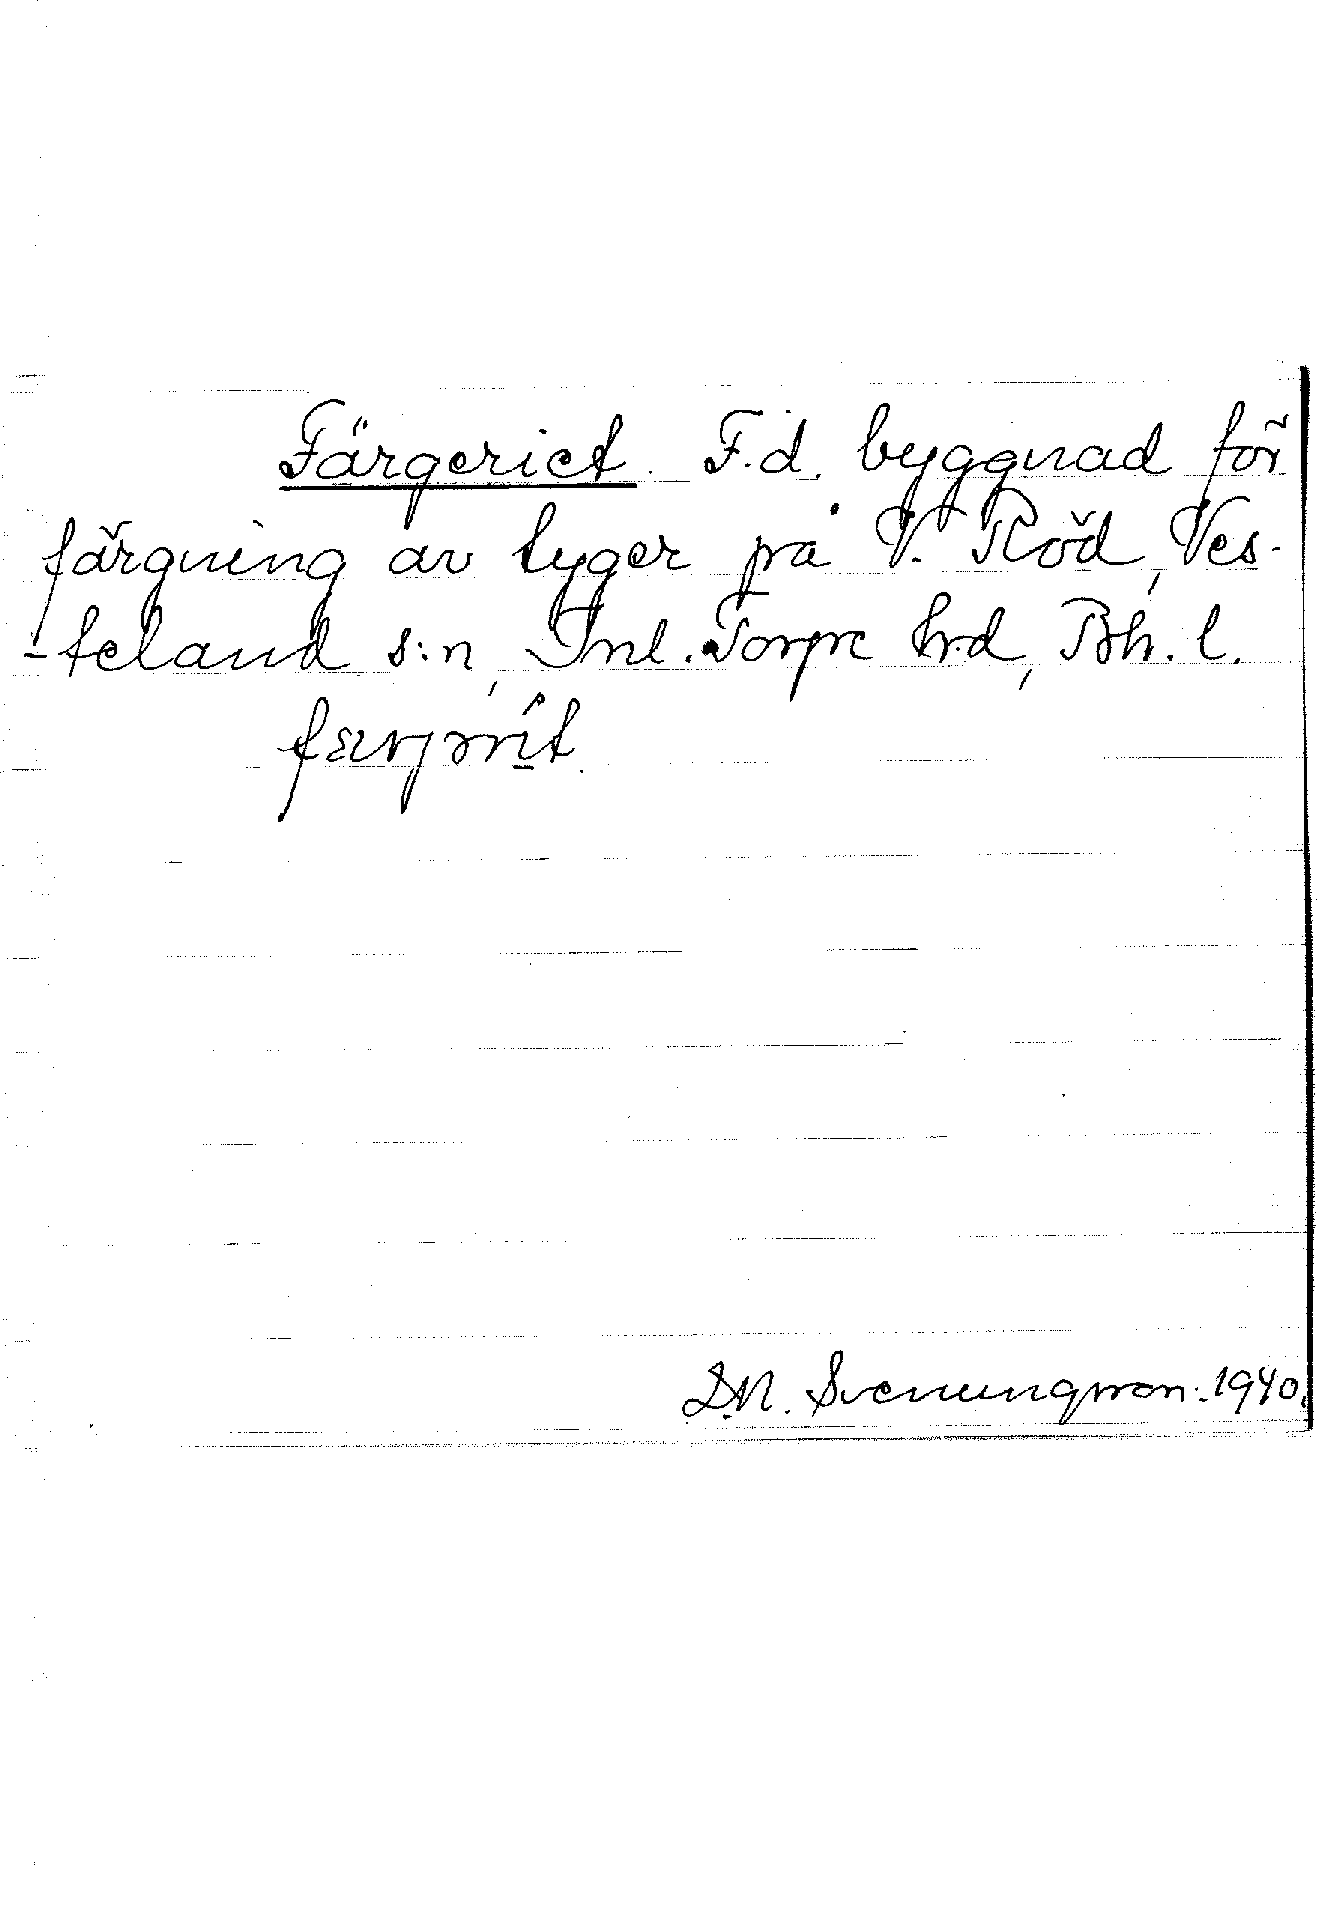 Färgeriet. F.d. byggnad för
färgning av tyger på V. Röd, Ves-
-teland s:n, Inl. Torpe hrd, Bh. l.
D.N. Svenungsson. 1940.